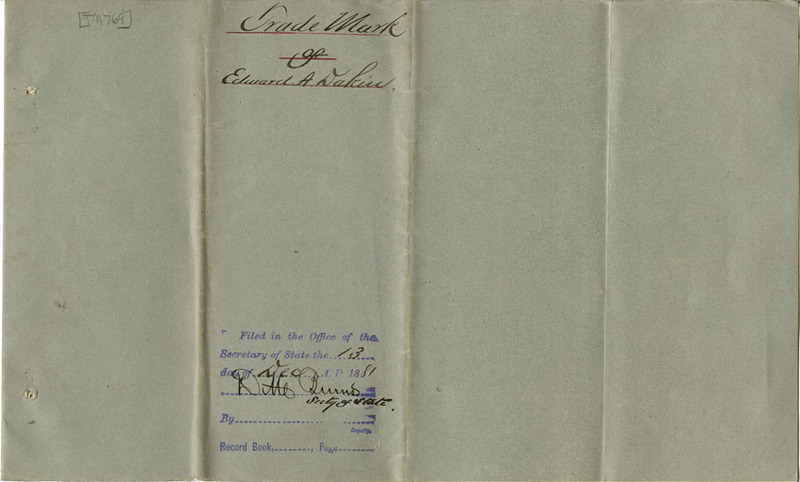 [TM769]
Trade Mark
of
Edward A Dakin.
Filed in the Office of the
Secretary of State the 13
day of Dec A. D. 1881
D. M. Burns
Secty of State.
By
Deputy.
Record Book, , Page